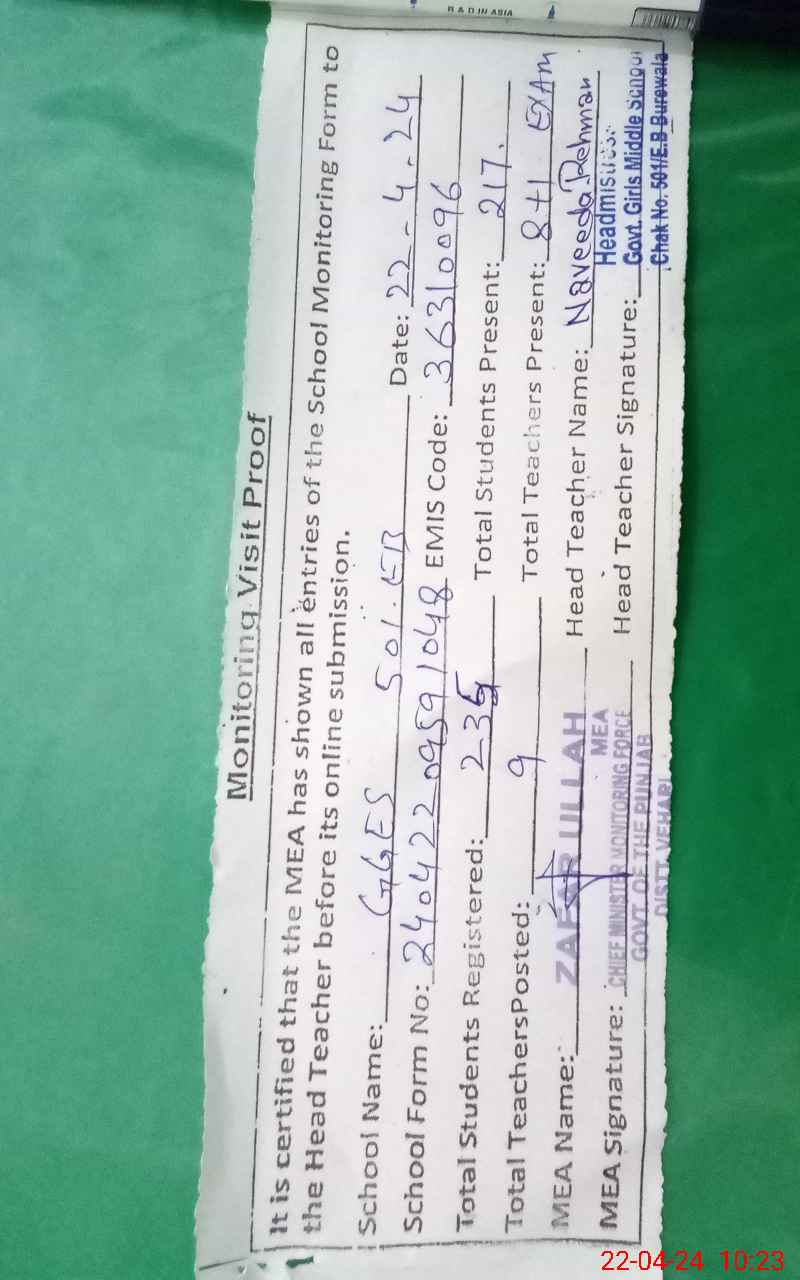 R A D IN ASIA
Monitoring Visit Proof
It is certified that the MEA has shown all entries of the School Monitoring Form to
the Head Teacher before its online submission.
School Name: GGES 501.EB Date: 22-4-24
School Form No: 24042209591048 EMIS Code: 36310096
Total Students Registered: 235 Total Students Present: 217.
Total TeachersPosted: 9 Total Teachers Present: 8+1 EXAM
MEA Name: ZAFAR ULLAH Head Teacher Name: Naveeda Rehman
MEA Headmistress
MEA Signature: CHIEF MINISTER MONITORING FORCE Head Teacher Signature: Govt. Girls Middle School
GOVT OF THE PUNJAB Chak No. 501/E.B Burewala
DISTT VEHARI
22-04-24 10:23